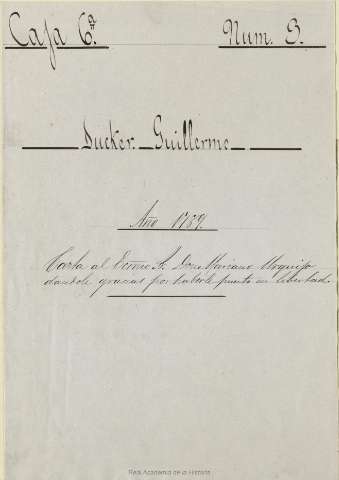 Caja 6ª. Num. 3.
Ducker Guillermo
Año 1789.
Carta al Excmo Sr. Don Mariano Urquijo
dandole gracias por haberle puesto en libertad.
Real Academia de la Historia